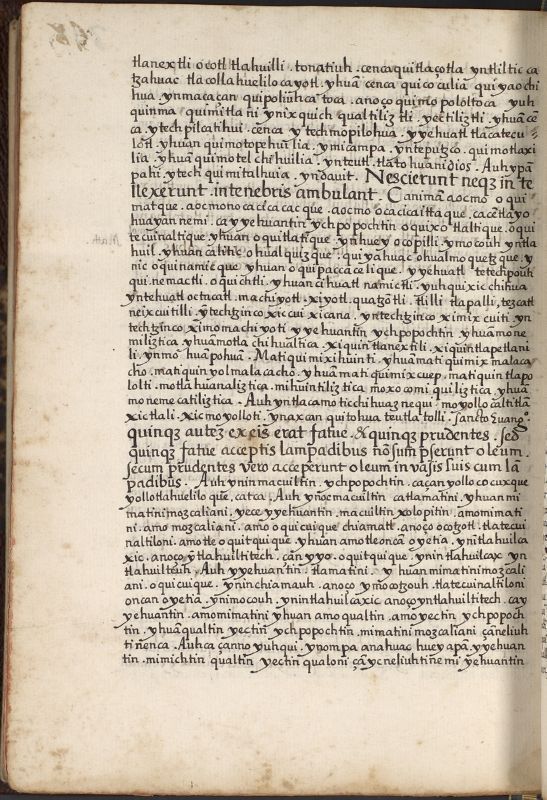 tlanextli ocotl tlahuilli . tonatiuh . cenca quitlaçotla yntliltic ca
tzahuac tlacollahuelilocayotl . yhuã cenca quicoculia quiyaochi
hua . ynmacaçan quipoliũhca toca . anoço quimo pololtoca yuh
quinma quimitla ni ynixquich qualtiliz tli . yectiliztli . yhuã cẽ
ca . ytechpilcatihui . cenca ytechmopilohua . yyehuatl tlãcatecu
lotl . yhuan quimotopehuilia . ymicampa . ynteputzco . quimotlaxi
lia yhuã quimotel chihuilia . ynteutl . tlãto huanidios . Auh ypã
pahi . ytech quimitalhuia . yndauit . Nescierunt neqz in te
llexerunt . intenebris ambulant . Canimã aocmo oqui
matque . aocmono cacicacac que . aocmo ocacicaittaque . cacẽtlayo
huayan nemi . ca yyehuantin ychpopochtin oquixcotlaltique . oqui
tecuinaltique . yhuan oquitlatique . ynhuey ocopilli . ymocouh yntla
huil . yhuan caliti c ohualquizque . quiyahuac ohualmoquetzque . y
nic oquinamicque yhuan oquipaccaceli que . yyehuatl tetechpouh
qui . nemactli . oquichtli . yhuan cihuatl namictli . yuhquixichihua
yntehuatl octacatl . machiyotl . xiyotl . quatzõtli . tlilli tlapalli , tezcatl
neixcuitilli . ytechtzinco xiccui xicana . yntechtzinco ximixcuiti yn
techtzinco ximomachiyoti yyehuantin ychpopochtin yhuã mone
miliztica yhuãmotla chihualtica . xiquintlanextili . xiquintlapetlani
li . ynmo huãpohuã . Matiquimixihuinti . yhuãmatiquimix malaca
cho . matiquin yolmalacachõ . yhuã matiquimixcuep . matiquintlapo
lolti . motlã huanaliztica . mihuintiliztica moxocomiquiliztica yhuã
monemecatiliztica . Auh yntlacamo ticchihuaznequi moyollo caltitlã
xictlali . xicmoyolloti . ynaxcan quitohua teutlatolli . Sancto Euang°.
quinqz autẽ ex eis erat fatue . & quinqz prudentes . sed
quinqz fatue acceptis lampadibus nõ sumpserunt oleum .
secum prudentes vero acceperunt oleum in vasis suis cum lã
padibus . Auh yninmacuiltin . ychpopochtin . caçan yollococuxque
yollotlahuelilo que , catca , Auh yñoc macuiltin catlamatini . yhuan mi
matini mozcaliani . yece yyehuantin . macuiltin xolopitin . amomimati
ni . amo mozcaliani . amo oquicuique chiamatl . anoço ocotzotl . tlatecui
naltiloni . amotle oquitquique . yhuan amotleoncã oyetia , ynitlahuilca
xic . anoço ytlahuiltitech . çan yyo . oquitquique . ynintlahuilcax yn
tlahuilteuh . Auh yyehuantin . tlamatini . yhuan mimatini mozcali
ani . oquicuique . ynin chiamauh . anoço ymocotzouh . tlatecuinaltiloni
oncan oyetia . ynimocouh . ynintlahuilcaxic anoço yntlahuiltitech . ca y
yehuantin . amomimatini yhuan amo qualtin . amo yectin ychpopoch
tin . yhuã qualtin yectin ychpopochtin . mimatini mozcaliani çãneliuh
tinenca . Auhca çanno yuhqui . ynompa anahuac hueyapã yyehuan
tin . mimichtin qualtin yectin qualoni çã yc neliuhtinemi yehuantin